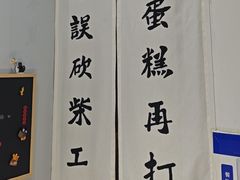 蛋糕再打
誤砍柴工